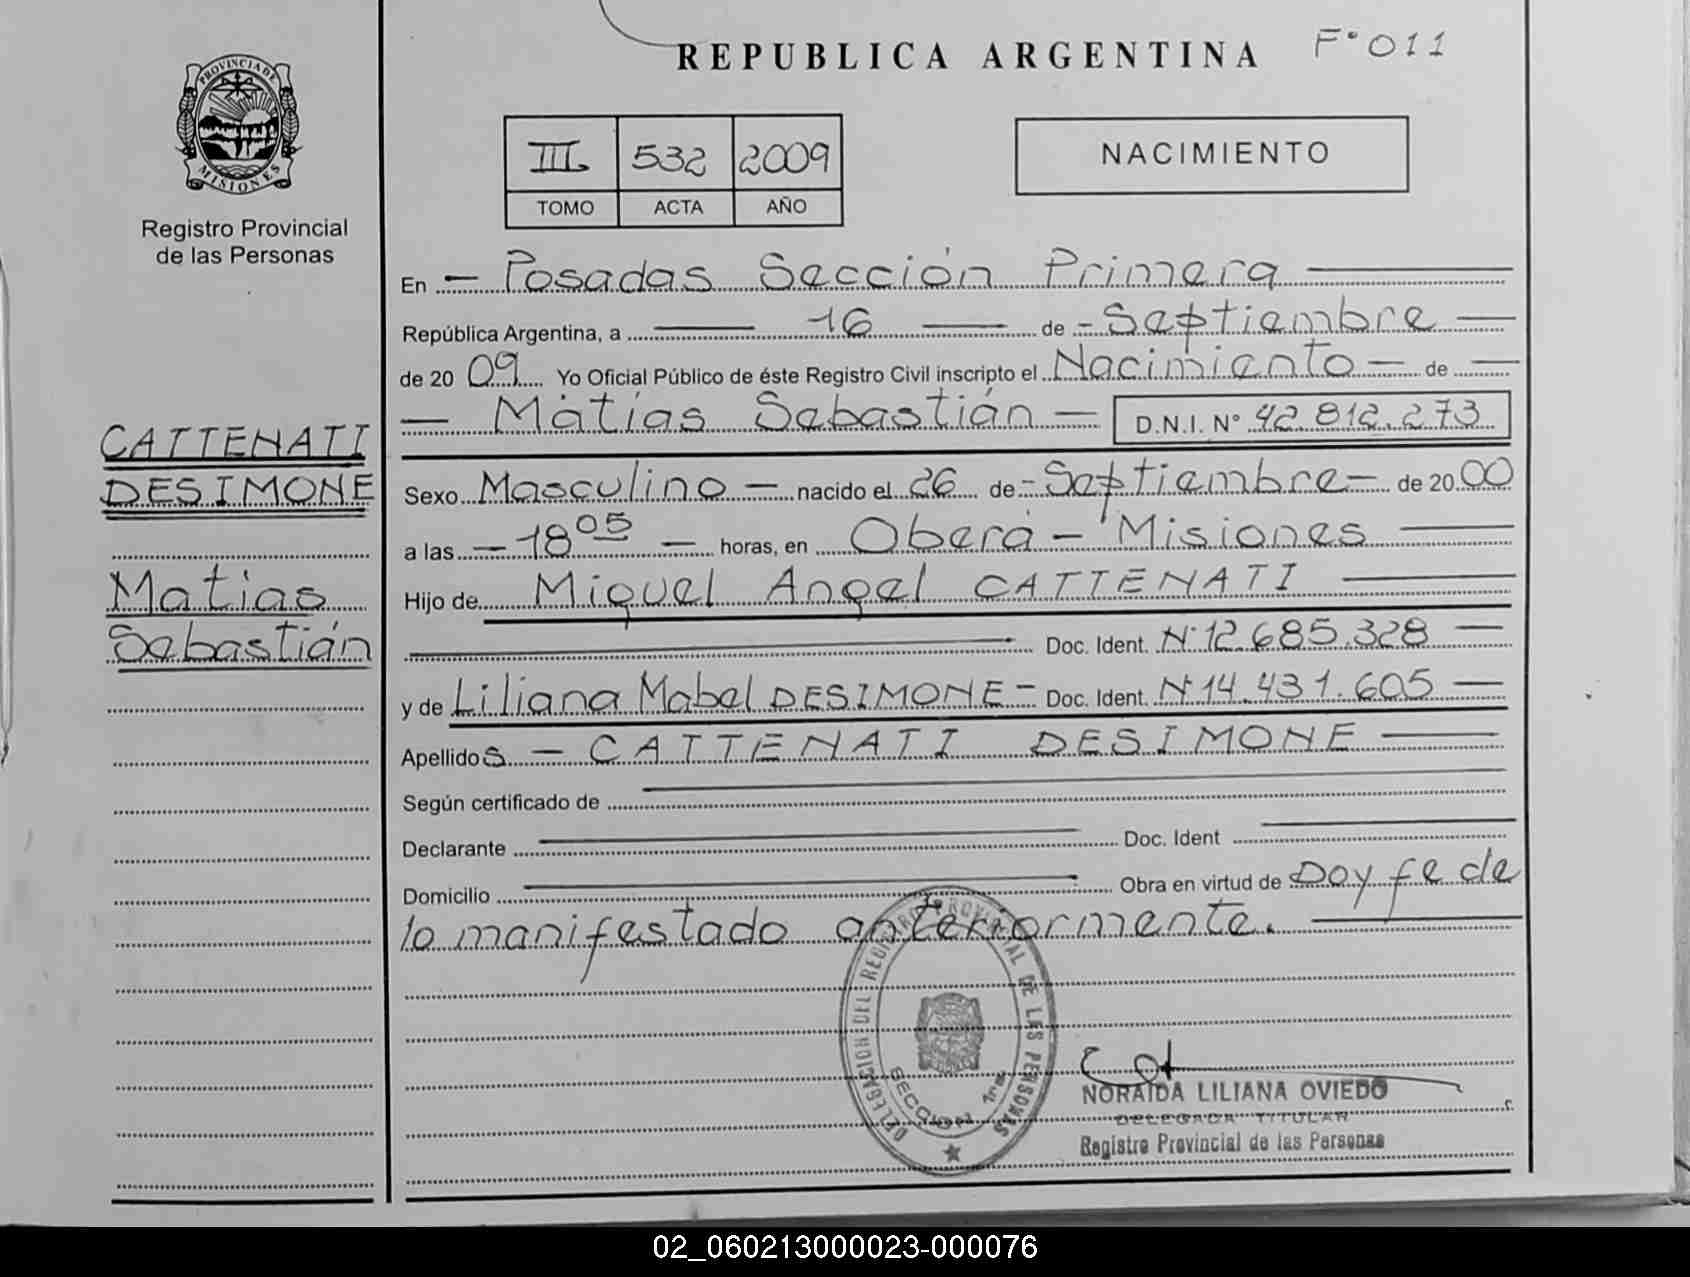 REPUBLICA ARGENTINA F° 011
PROVINCIA DE MISIONES
Registro Provincial
de las Personas
III 532 2009
TOMO ACTA AÑO
NACIMIENTO
En Posadas Sección Primera
República Argentina, a 16 de Septiembre
de 20 09 Yo Oficial Público de éste Registro Civil inscripto el Nacimiento de
Matías Sebastián D.N.I. N° 42.812.273
CATTENATI
DESIMONE
Matías
Sebastián
Sexo Masculino nacido el 26 de Septiembre de 20 00
a las 18 05 horas, en Oberá - Misiones
Hijo de Miguel Angel CATTENATI
Doc. Ident. N° 12.685.328
y de Liliana Mabel DESIMONE Doc. Ident. N° 14.431.605
Apellidos CATTENATI DESIMONE
Según certificado de
Declarante Doc. Ident
Domicilio Obra en virtud de Doy fe de
lo manifestado anteriormente.
DELEGACION DEL REGISTRO PROVINCIAL DE LAS PERSONAS
SECCION 1ra
NORAIDA LILIANA OVIEDO
DELEGADA TITULAR
Registro Provincial de las Personas
02_060213000023-000076